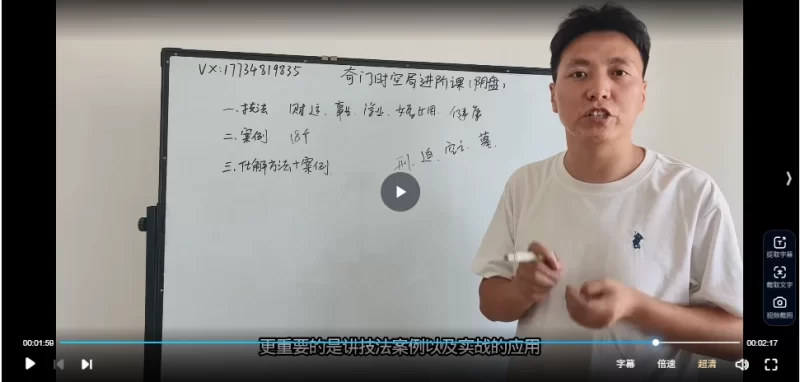 VX:17734819835
奇门时空局进阶课(阴盘)
一.技法 财运、事业、学业、婚恋占用、健康
二.案例 18个
三.化解方法+案例
刑、迫、空亡、墓
更重要的是讲技法案例以及实战的应用
提取字幕
截取文字
视频截图
00:01:59
00:02:17
字幕
倍速
超清